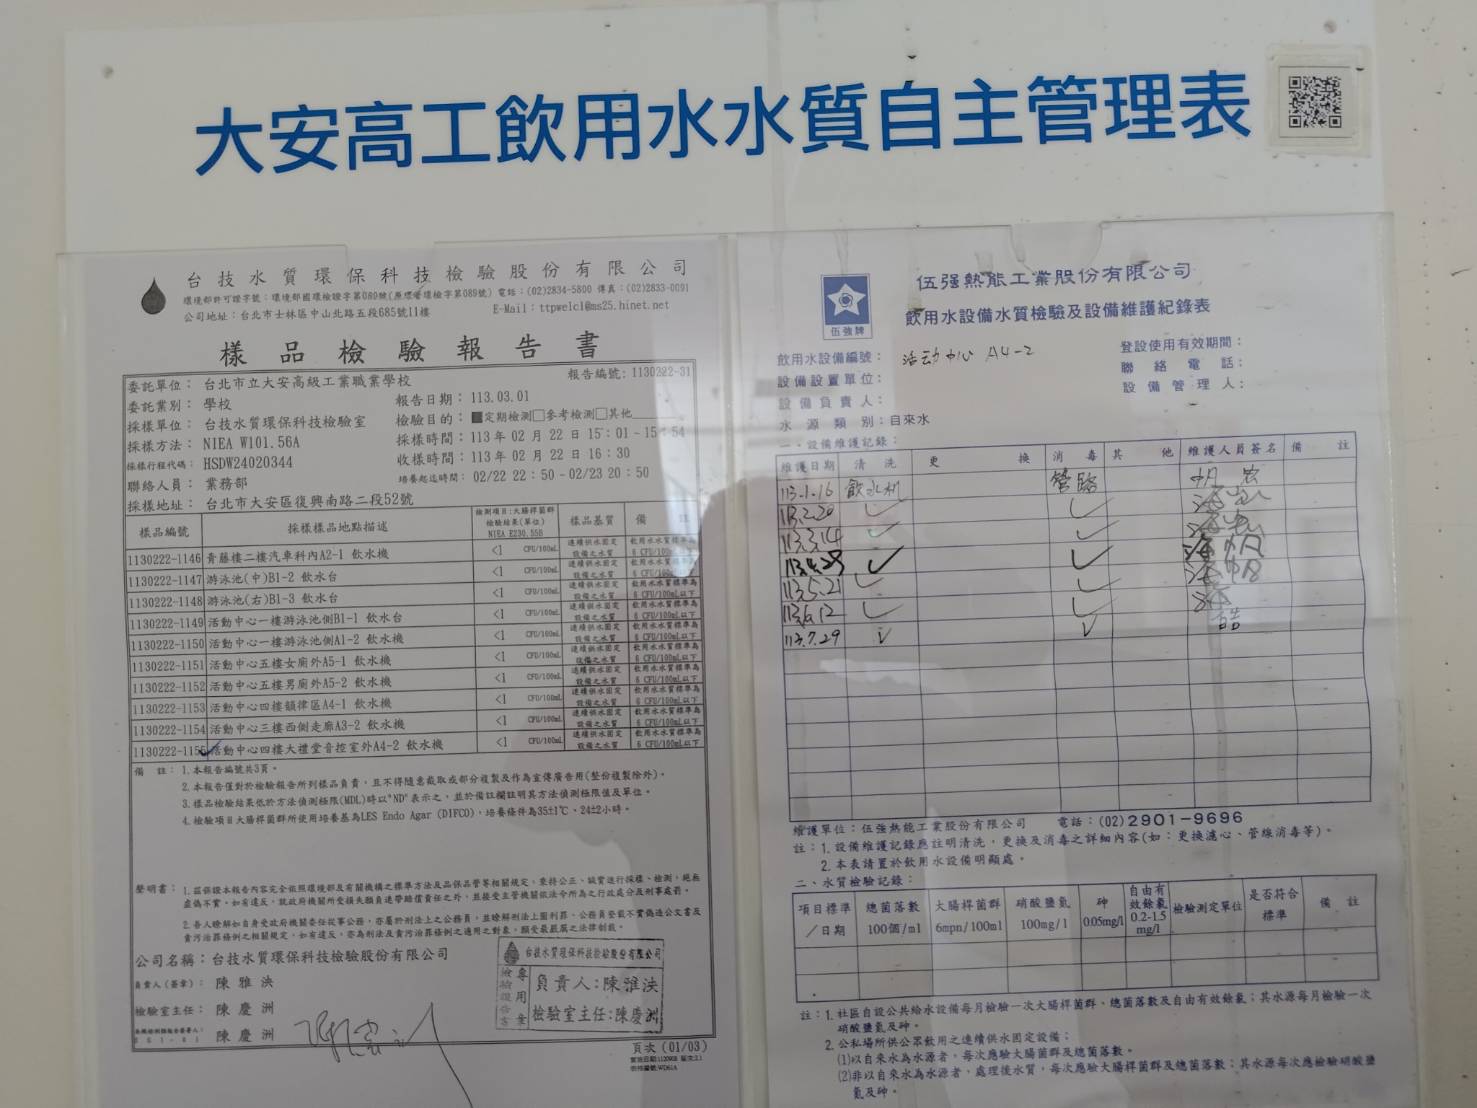 大安高工飲用水水質自主管理表
台技水質環保科技檢驗股份有限公司
環境部許可證字號：環境部國環檢證字第089號(原環署環檢字第089號) 電話：(02)2834-5800 傳真：(02)2833-0091
公司地址：台北市士林區中山北路五段685號11樓 E-Mail：ttpwelcl@ms25.hinet.net
樣品檢驗報告書
委託單位：台北市立大安高級工業職業學校 報告編號：1130222-31
委託業別：學校 報告日期：113.03.01
採樣單位：台技水質環保科技檢驗室 檢驗目的：■定期檢測□參考檢測□其他
採樣方法：NIEA W101.56A 採樣時間：113 年 02 月 22 日 15：01－15：54
採樣行程代碼：HSDW24020344 收樣時間：113 年 02 月 22 日 16：30
聯絡人員：業務部 培養起迄時間：02/22 22：50－02/23 20：50
採樣地址：台北市大安區復興南路二段52號
樣品編號 採樣樣品地點描述 檢測項目:大腸桿菌群 檢驗結果(單位) NIEA E230.55B 樣品基質 備註
1130222-1146 青藤樓二樓汽車科內A2-1 飲水機 <1 CFU/100mL 連續供水固定設備之水質 飲用水水質標準為6 CFU/100mL以下
1130222-1147 游泳池(中)B1-2 飲水台 <1 CFU/100mL 連續供水固定設備之水質 飲用水水質標準為6 CFU/100mL以下
1130222-1148 游泳池(右)B1-3 飲水台 <1 CFU/100mL 連續供水固定設備之水質 飲用水水質標準為6 CFU/100mL以下
1130222-1149 活動中心一樓游泳池側B1-1 飲水台 <1 CFU/100mL 連續供水固定設備之水質 飲用水水質標準為6 CFU/100mL以下
1130222-1150 活動中心一樓游泳池側A1-2 飲水機 <1 CFU/100mL 連續供水固定設備之水質 飲用水水質標準為6 CFU/100mL以下
1130222-1151 活動中心五樓女廁外A5-1 飲水機 <1 CFU/100mL 連續供水固定設備之水質 飲用水水質標準為6 CFU/100mL以下
1130222-1152 活動中心五樓男廁外A5-2 飲水機 <1 CFU/100mL 連續供水固定設備之水質 飲用水水質標準為6 CFU/100mL以下
1130222-1153 活動中心四樓韻律區A4-1 飲水機 <1 CFU/100mL 連續供水固定設備之水質 飲用水水質標準為6 CFU/100mL以下
1130222-1154 活動中心三樓西側走廊A3-2 飲水機 <1 CFU/100mL 連續供水固定設備之水質 飲用水水質標準為6 CFU/100mL以下
1130222-1155 活動中心四樓大禮堂音控室外A4-2 飲水機 <1 CFU/100mL 連續供水固定設備之水質 飲用水水質標準為6 CFU/100mL以下
備 註：1.本報告編號共3頁。
2.本報告僅對於檢驗報告所列樣品負責，且不得隨意截取或部分複製及作為宣傳廣告用(整份複製除外)。
3.樣品檢驗結果低於方法偵測極限(MDL)時以"ND"表示之，並於備註欄註明其方法偵測極限值及單位。
4.檢驗項目大腸桿菌群所使用培養基為LES Endo Agar (DIFCO)，培養條件為35±1℃、24±2小時。
聲明書：1.茲保證本報告內容完全依照環境部及有關機構之標準方法及品保品管等相關規定，秉持公正、誠實進行採樣、檢測，絕無
虛偽不實，如有違反，就政府機關所受損失願負連帶賠償責任之外，並接受主管機關依法令所為之行政處分及刑事處罰。
2.吾人瞭解如自身受政府機關委任從事公務，亦屬於刑法上之公務員，並瞭解刑法上圖利罪、公務員登載不實偽造公文書及
貪污治罪條例之相關規定，如有違反，亦為刑法及貪污治罪條例之適用之對象，願受最嚴厲之法律制裁。
公司名稱：台技水質環保科技檢驗股份有限公司
負責人(簽章)：陳雅泱
檢驗室主任：陳慶洲
陳慶洲
台技水質環保科技檢驗股份有限公司
檢驗報告專用章
負責人:陳雅泱
檢驗室主任:陳慶洲
頁次 (01/03)
伍強牌
伍强熱能工業股份有限公司
飲用水設備水質檢驗及設備維護紀錄表
飲用水設備編號：活动中心 A4-2 登設使用有效期間：
設備設置單位： 聯絡電話：
設備負責人： 設備管理人：
水源類別：自來水
一、設備維護記錄：
維護日期 清洗 更換 消毒 其他 維護人員簽名 備註
113.1.16 飲水机 管路
113.2.20 ✓ ✓
113.3.14 ✓ ✓
113.4.23 ✓ ✓
113.5.21 ✓ ✓
113.6.12 ✓ ✓
113.7.29 ✓ ✓
維護單位：伍強熱能工業股份有限公司 電話：(02)2901-9696
註：1.設備維護記錄應註明清洗，更換及消毒之詳細內容(如：更換濾心、管線消毒等)。
2.本表請置於飲用水設備明顯處。
二、水質檢驗記錄：
項目標準/日期 總菌落數 100個/ml 大腸桿菌群 6mpn/100ml 硝酸鹽氮 100mg/l 砷 0.05mg/l 自由有效餘氯 0.2-1.5 mg/l 檢驗測定單位 是否符合標準 備註
註：1.社區自設公共給水設備每月檢驗一次大腸桿菌群、總菌落數及自由有效餘氯；其水源每月檢驗一次
硝酸鹽氮及砷。
2.公私場所供公眾飲用之連續供水固定設備：
(1)以自來水為水源者，每次應驗大腸菌群及總菌落數。
(2)非以自來水為水源者，處理後水質，每次應驗大腸桿菌群及總菌落數；其水源每次應檢驗硝酸鹽
氮及砷。